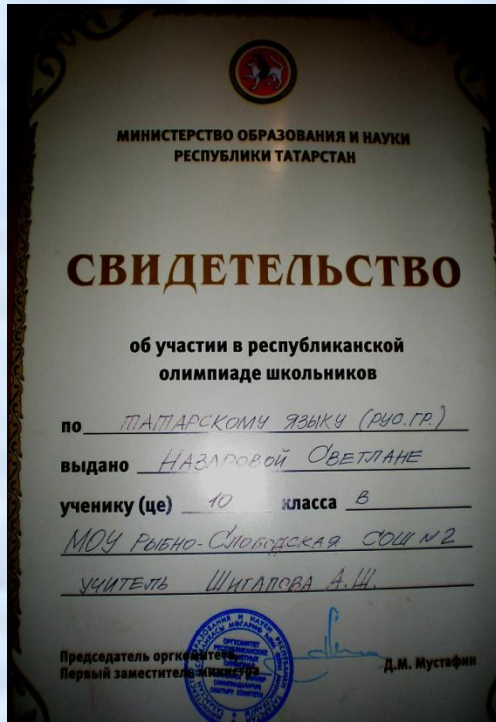 МИНИСТЕРСТВО ОБРАЗОВАНИЯ И НАУКИ
РЕСПУБЛИКИ ТАТАРСТАН
СВИДЕТЕЛЬСТВО
об участии в республиканской
олимпиаде школьников
по ТАТАРСКОМУ ЯЗЫКУ (РУС.ГР.)
выдано НАЗАРОВОЙ СВЕТЛАНЕ
ученику (це) 10 класса В
МОУ РЫБНО-СЛОБОДСКАЯ СОШ №2
УЧИТЕЛЬ ШИГАПОВА А.Ш.
Председатель оргкомитета,
Первый заместитель министра
Д.М. Мустафин